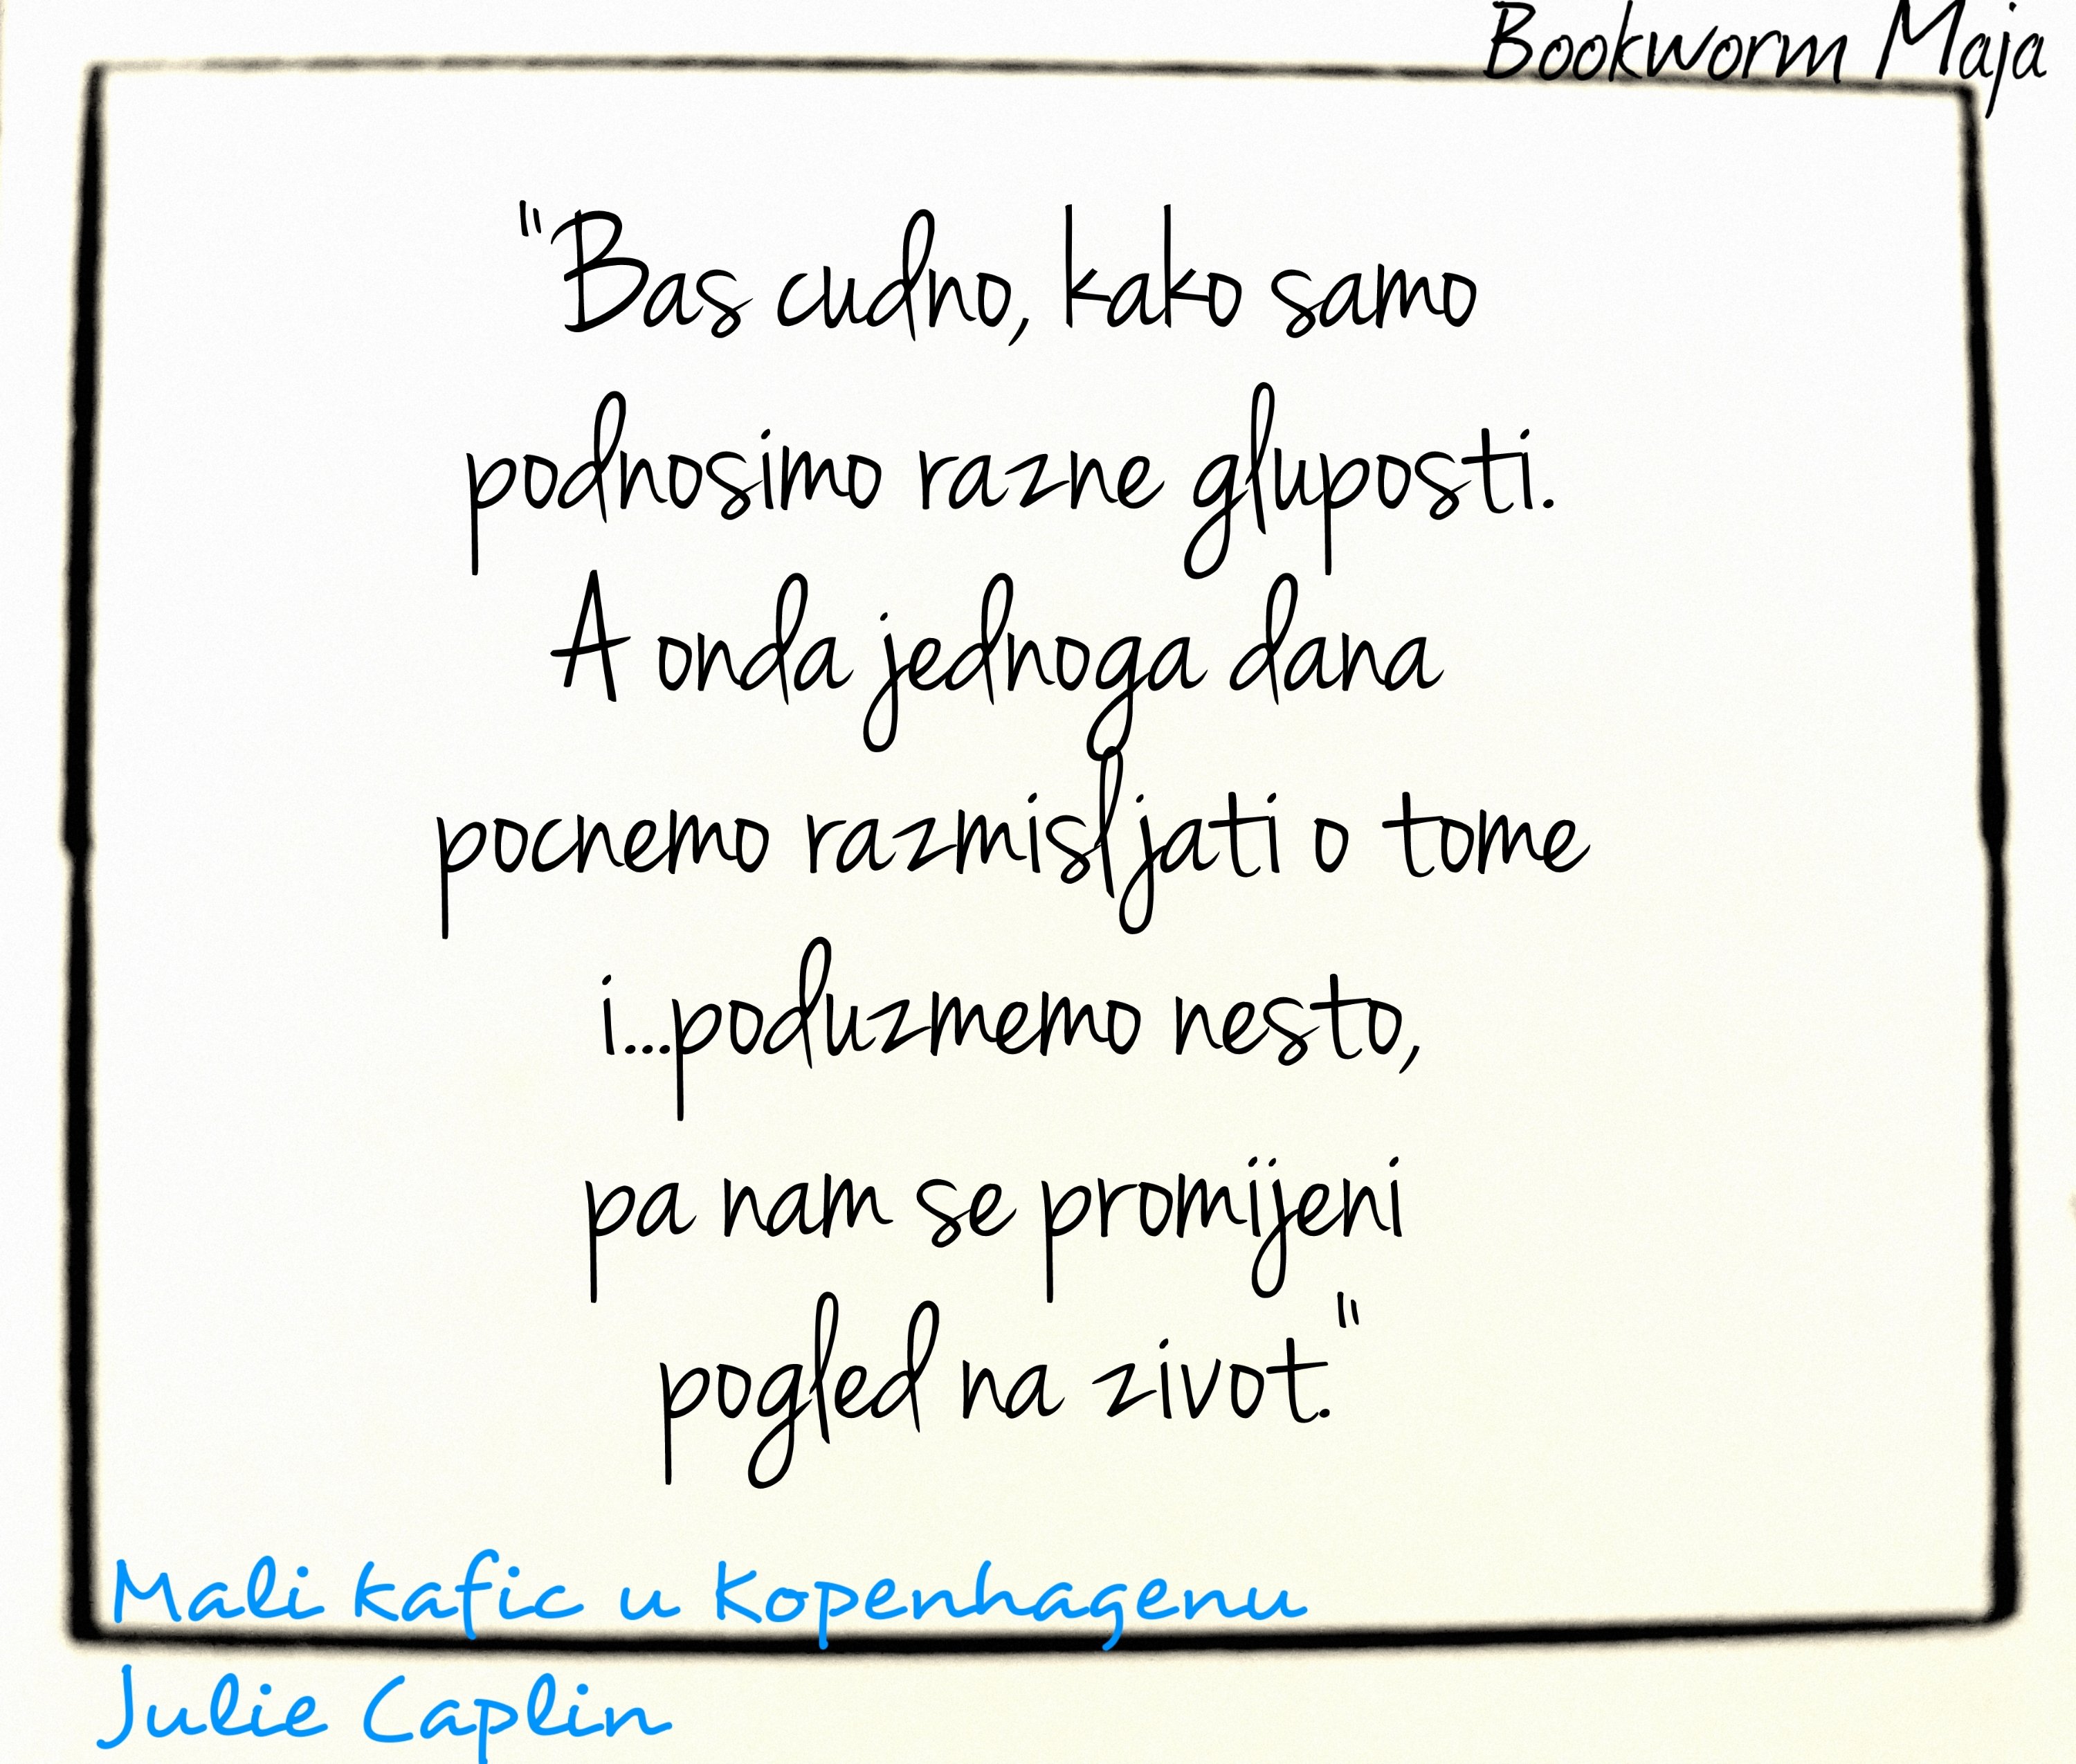 Bookworm Maja
"Bas cudno, kako samo
podnosimo razne gluposti.
A onda jednoga dana
pocnemo razmisljati o tome
i...poduzmemo nesto,
pa nam se promijeni
pogled na zivot."
Mali kafic u Kopenhagenu
Julie Caplin